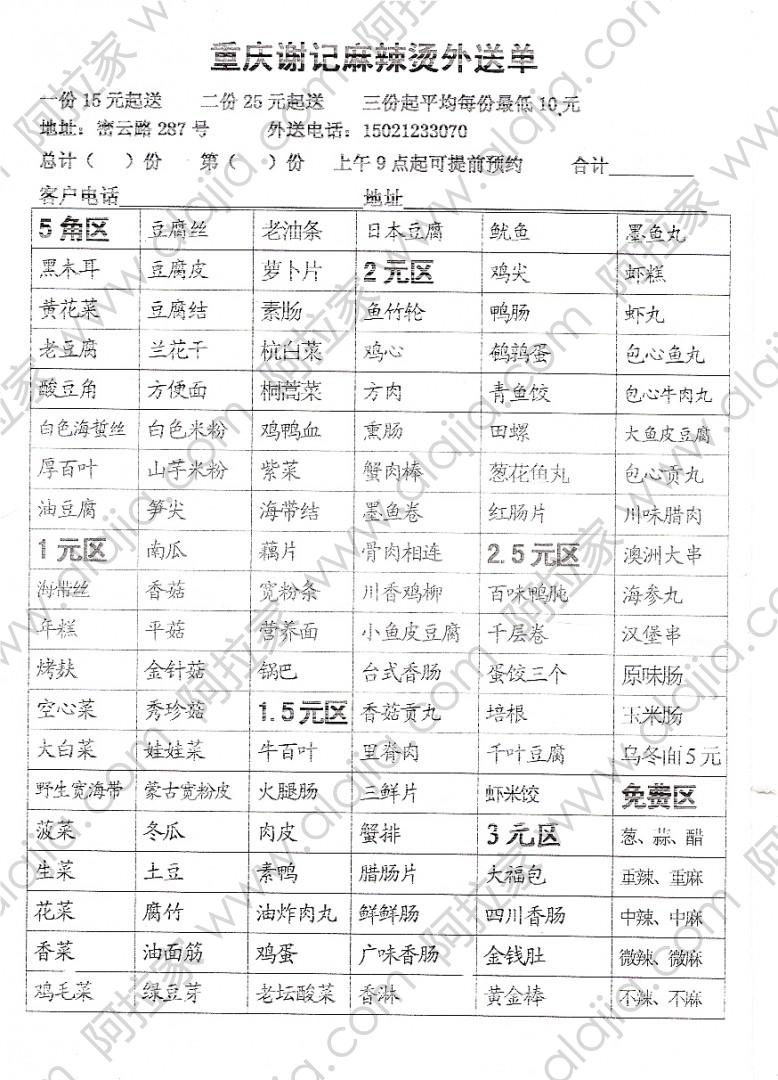 重庆谢记麻辣烫外送单
一份15元起送 二份25元起送 三份起平均每份最低10元
地址：密云路287号 外送电话：15021233070
总计（ ）份 第（ ）份 上午9点起可提前预约 合计________
客户电话________________地址________________
5角区 豆腐丝 老油条 日本豆腐 鱿鱼 墨鱼丸
黑木耳 豆腐皮 萝卜片 2元区 鸡尖 虾糕
黄花菜 豆腐结 素肠 鱼竹轮 鸭肠 虾丸
老豆腐 兰花干 杭白菜 鸡心 鹌鹑蛋 包心鱼丸
酸豆角 方便面 桐蒿菜 方肉 青鱼饺 包心牛肉丸
白色海蜇丝 白色米粉 鸡鸭血 熏肠 田螺 大鱼皮豆腐
厚百叶 山芋米粉 紫菜 蟹肉棒 葱花鱼丸 包心贡丸
油豆腐 笋尖 海带结 墨鱼卷 红肠片 川味腊肉
1元区 南瓜 藕片 骨肉相连 2.5元区 澳洲大串
海带丝 香菇 宽粉条 川香鸡柳 百味鸭肫 海参丸
年糕 平菇 营养面 小鱼皮豆腐 千层卷 汉堡串
烤麸 金针菇 锅巴 台式香肠 蛋饺三个 原味肠
空心菜 秀珍菇 1.5元区 香菇贡丸 培根 玉米肠
大白菜 娃娃菜 牛百叶 里脊肉 千叶豆腐 乌冬面5元
野生宽海带 蒙古宽粉皮 火腿肠 三鲜片 虾米饺 免费区
菠菜 冬瓜 肉皮 蟹排 3元区 葱、蒜、醋
生菜 土豆 素鸭 腊肠片 大福包 重辣、重麻
花菜 腐竹 油炸肉丸 鲜鲜肠 四川香肠 中辣、中麻
香菜 油面筋 鸡蛋 广味香肠 金钱肚 微辣、微麻
鸡毛菜 绿豆芽 老坛酸菜 香淋 黄金棒 不辣、不麻
阿拉家 www.alajia.com